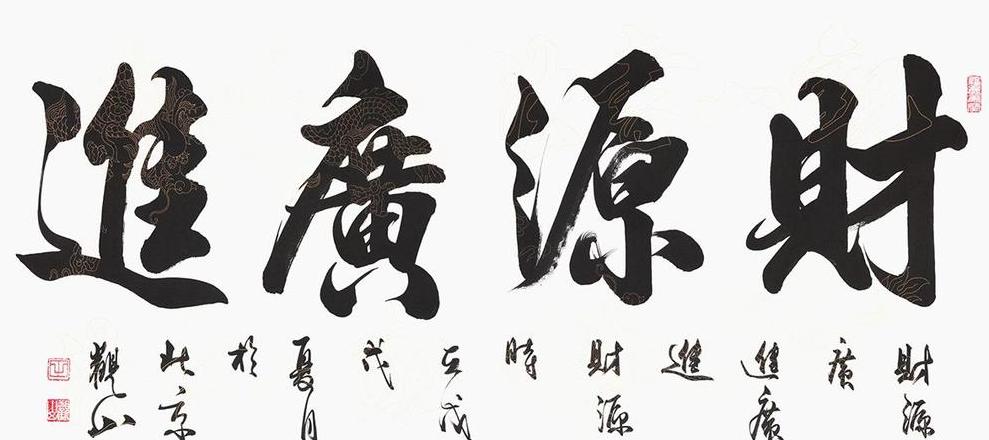 財源廣進
財源
廣
進廣
進
財源
時
在戊
戌
夏月
於
北京
觀山